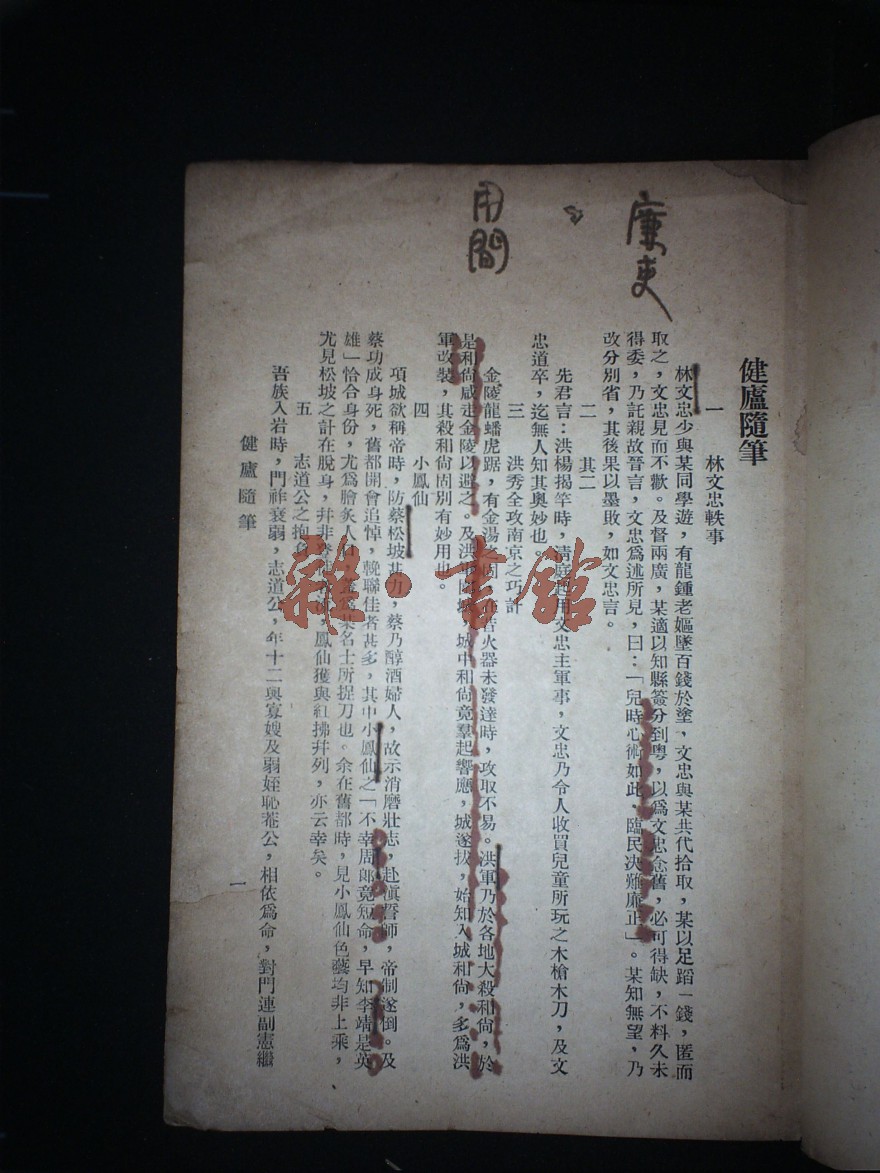 廉吏
用間
健廬隨筆
一　林文忠軼事
林文忠少與某同學遊，有龍鍾老嫗墜百錢於塗，文忠與某共代拾取，某以足蹈一錢，匿而
取之，文忠見而不歡。及督兩廣，某適以知縣簽分到粵，以爲文忠念舊，必可得缺，不料久未
得委，乃託親故晉言，文忠爲述所見，曰：「兒時心術如此，臨民决難廉正」。某知無望，乃
改分別省，其後果以墨敗，如文忠言。
二　其二
先君言：洪楊揭竿時，清庭起用文忠主軍事，文忠乃令人收買兒童所玩之木槍木刀，及文
忠道卒，迄無人知其奥妙也。
三　洪秀全攻南京之巧計
金陵龍蟠虎踞，有金湯之固，在昔火器未發達時，攻取不易。洪軍乃於各地大殺和尙，於
是和尙咸走金陵以避之。及洪軍圍城，城中和尙竟羣起響應，城遂拔，始知入城和尙，多爲洪
軍改裝，其殺和尙固別有妙用也。
四　小鳳仙
項城欲稱帝時，防蔡松坡甚力，蔡乃醇酒婦人，故示消磨壯志，赴滇誓師，帝制遂倒。及
蔡功成身死，舊都開會追悼，輓聯佳者甚多，其中小鳳仙之「不幸周郎竟短命，早知李靖是英
雄」恰合身份，尤爲膾炙人口，蓋爲某名士所捉刀也。余在舊都時，見小鳳仙色藝均非上乘，
尤見松坡之計在脫身，幷非　鳳仙獲與紅拂幷列，亦云幸矣。
五　志道公之抱負
吾族入岩時，門祚衰弱，志道公，年十二與寡嫂及弱姪恥菴公，相依爲命，對門連副憲繼
健廬隨筆
一
雜·書館